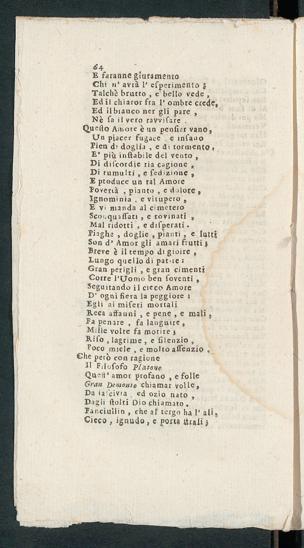 64
E faranne giuramento
Chi n' avrà l' esperimento;
Talchè brutto, e bello vede,
Ed il chiaror fra l' ombre crede,
Ed il bianco ner gli pare,
Nè sa il vero ravvisare.
Questo Amore è un pensier vano,
Un piacer fugace e insano
Pien di doglia, e di tormento,
E' più instabile del vento,
Di discordie ria cagione,
Di tumulti, e sedizione,
E produce un tal Amore
Povertà, pianto, e dolore,
Ignominia, e vitupero,
E vi manda al cimetero
Sconquassati, e rovinati,
Mal ridotti, e disperati.
Piaghe, doglie, pianti, e lutti
Son d' Amor gli amari frutti;
Breve è il tempo di gioire,
Lungo quello di patire:
Gran perigli, e gran cimenti
Corre l' Uomo ben soventi,
Seguitando il cieco Amore
D' ogni fiera la peggiore:
Egli ai miseri mortali
Reca affanni, e pene, e mali,
Fa penare, fa languire,
Mille volte fa morire;
Riso, lagrime, e silenzio,
Poco miele, e molto assenzio.
Che però con ragione
Il Filosofo Platone
Quest' amor profano, e folle
Gran Demonio chiamar volle,
Da lascivia ed ozio nato,
Dagli stolti Dio chiamato.
Fanciullin, che al tergo ha l' ali,
Cieco, ignudo, e porta strali;